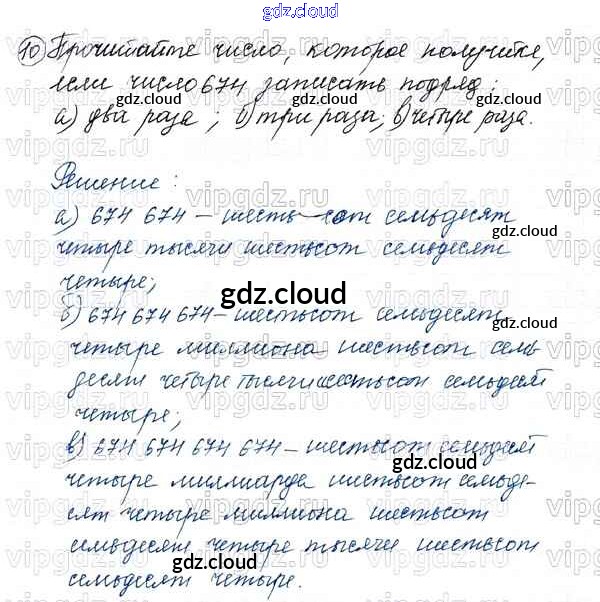 gdz.cloud
10 Прочитайте число, которое получите,
если число 674 записать подряд:
а) два раза; б) три раза; в) четыре раза.
Решение:
а) 674 674 – шестьсот семьдесят
четыре тысячи шестьсот семьдесят
четыре;
б) 674 674 674 – шестьсот семьдесят
четыре миллиона шестьсот семь-
десят четыре тысячи шестьсот семьдесят
четыре;
в) 674 674 674 674 – шестьсот семьдесят
четыре миллиарда шестьсот семьде-
сят четыре миллиона шестьсот
семьдесят четыре тысячи шестьсот
семьдесят четыре.